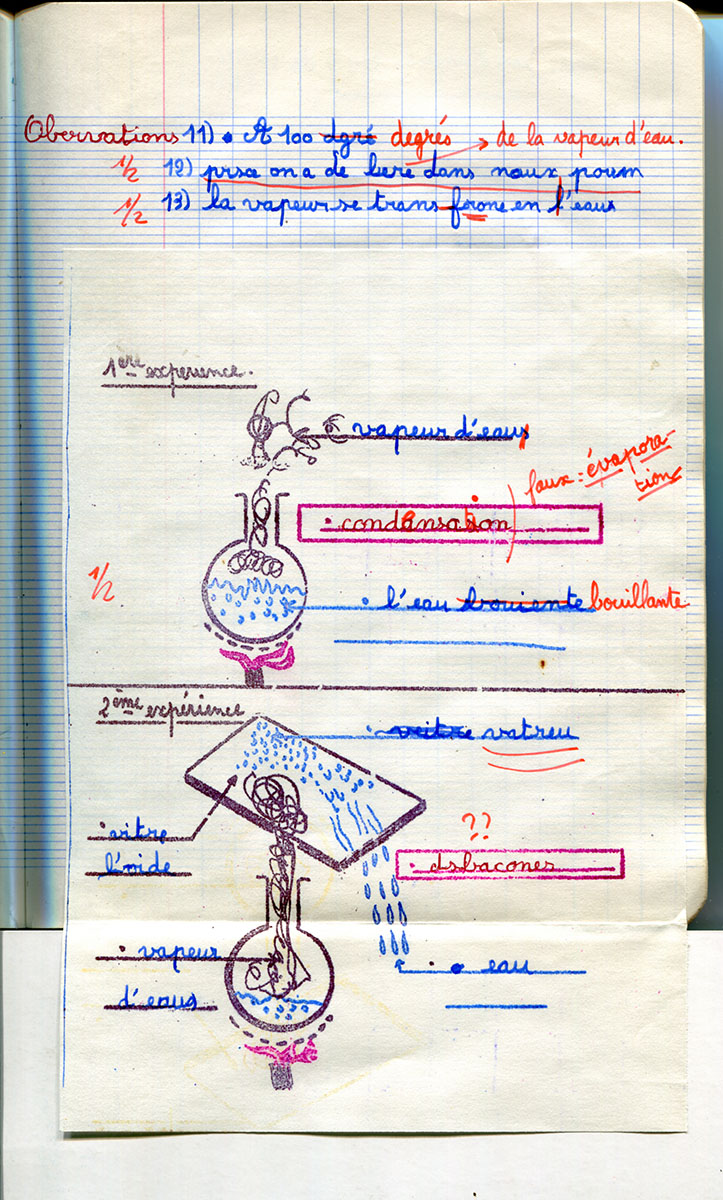 Obervations 11) • A 100 dgré degrés → de la vapeur d'eau.
1/2 12) prise on a de lere dans noux poum
1/2 13) la vapeur se trans frome en l'eaus
1ère expérience.
vapeur d'eaus
faux : évapora-
tion
• condansation
1/2
• l'eau bouiente bouillante
2ème expérience
• veitre vatreu
• vitre
l'inide
??
• dsbacones
• vapeur
d'eaus
• eau